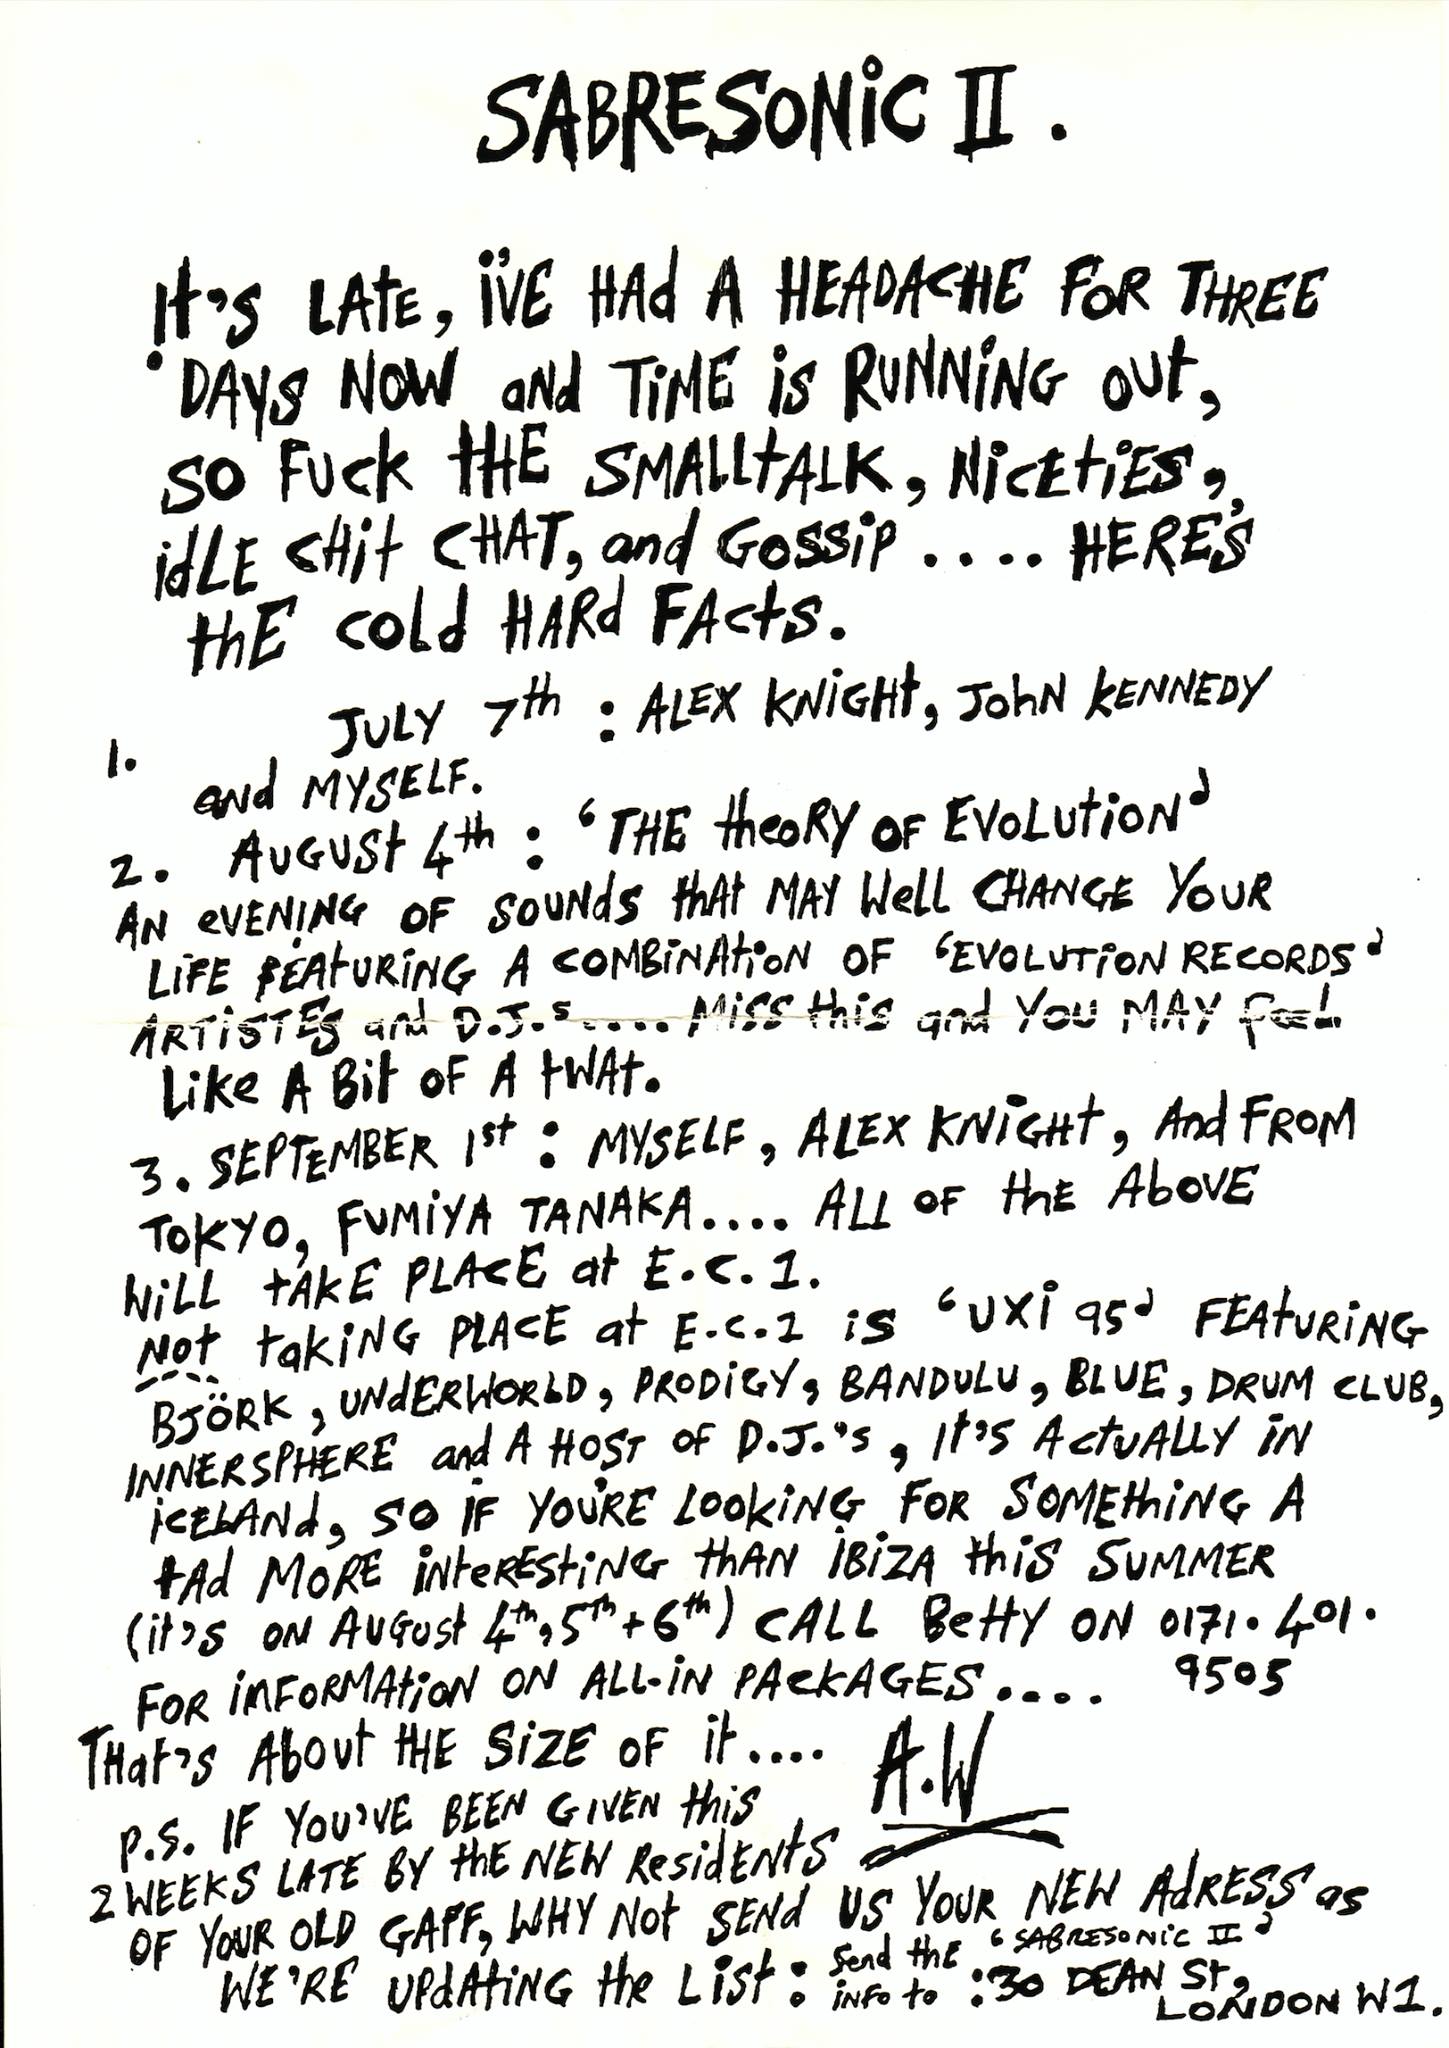 SABRESONIC II.
It's LATE, I'VE HAd A HEADACHE FOR THREE
DAYS NOW and TIME is RUNNING OUt,
SO FUCK tHE SMALLtALK, NICEtiES,
idLE CHit CHAT, and GOSSIP .... HERE'S
thE COLd HARd FACts.
1. JULY 7th : ALEX KNIGHt, JOhN KENNEDY
and MYSELF.
2. AUGUSt 4th : 'THE theORY OF EVOLUtiON'
AN eVENING OF SOUNds thAt MAY Well CHANGE YOUR
LIFE FEAtURING A COMBINAtiON OF 'EVOLUTION RECORDS'
ARTISTES and D.J.'s .... MISS this and YOU MAY FeeL
Like A Bit OF A tWAt.
3. SEPTEMBER 1st : MYSELF, ALEX KNIGHt, And FROM
TOKYO, FUMIYA TANAKA.... ALL OF thE AboVE
WILL tAKE PLACE at E.C.1.
NOt taKING PLACE at E.C.1 is 'UXI 95' FEAtURING
BJÖRK, UNdERWORLD, PRODIGY, BANDULU, BLUE, DRUM CLUB,
INNERSPHERE and A HOST OF D.J.'s, It'S ActUALLY IN
ICELANd, SO IF YOU'RE LOOKING FOR SOMEthING A
tAd MORE iNteRESting thAN IBIZA thiS SUMMER
(it's ON AUGUSt 4th, 5th + 6th) CALL BettY ON 0171. 401.
9505
FOR INFORMAtiON ON ALL-IN PACKAGES ....
THat's AbOUt tHE SIZE OF it....
A.W
P.S. IF YOU'VE BEEN GIVEN this
2 WEEKS LATE BY thE NEW ResidENtS
OF YOUR OLD GAFF, WHY NOt SENd US YOUR NEW AdRESS as
WE'RE UPdAtING the LISt : Send thE info to : 'SABRESONIC II'
30 DEAN St,
LONDON W1.